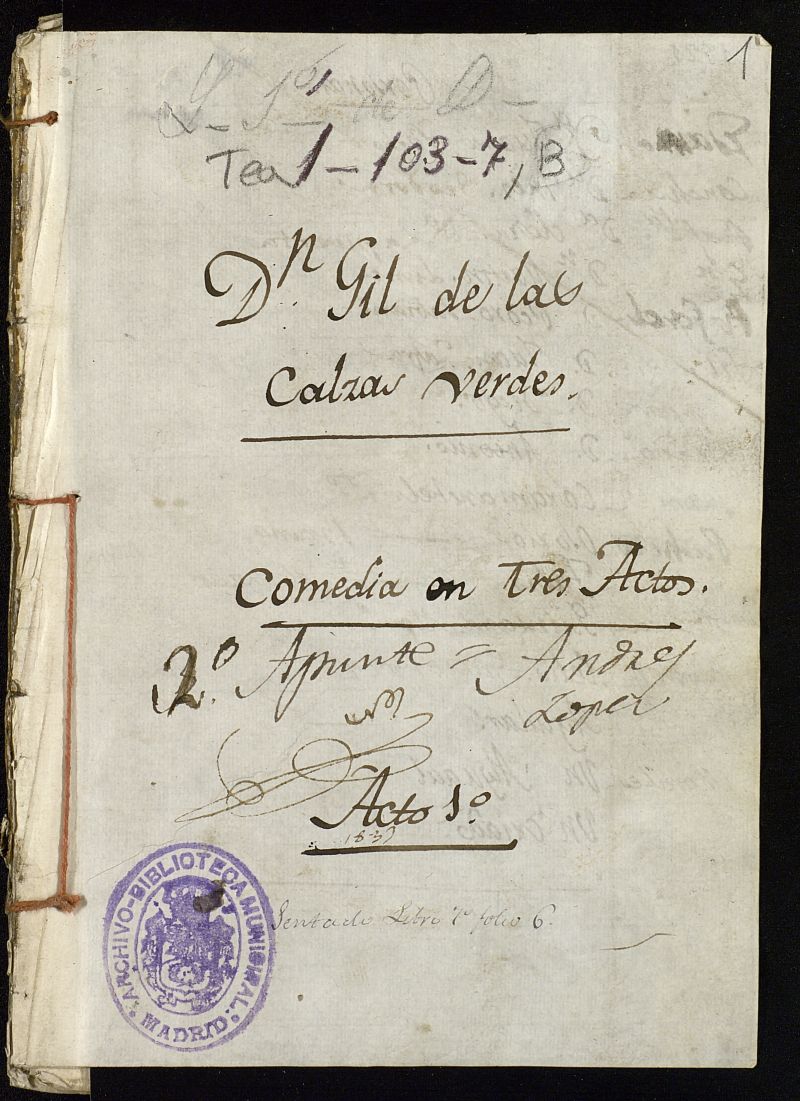 1
Tea 1-103-7, B
Dn Gil de las
Calzas verdes.
Comedia en Tres Actos.
2.º Apunte = Andres
Lopez
Acto 1.º
Sentado Libro 1º folio 6.
ARCHIVO-BIBLIOTECA MUNICIPAL
MADRID